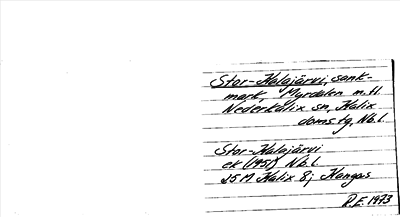 Stor-Halajärvi, sank-
mark, Myrdalen m.fl.
Nederkalix sn, Kalix
doms.tg, Nb.l.
Stor-Halajärvi
ek (1951) Nb.l.
25M Kalix 8j Kangas
R.E. 1973